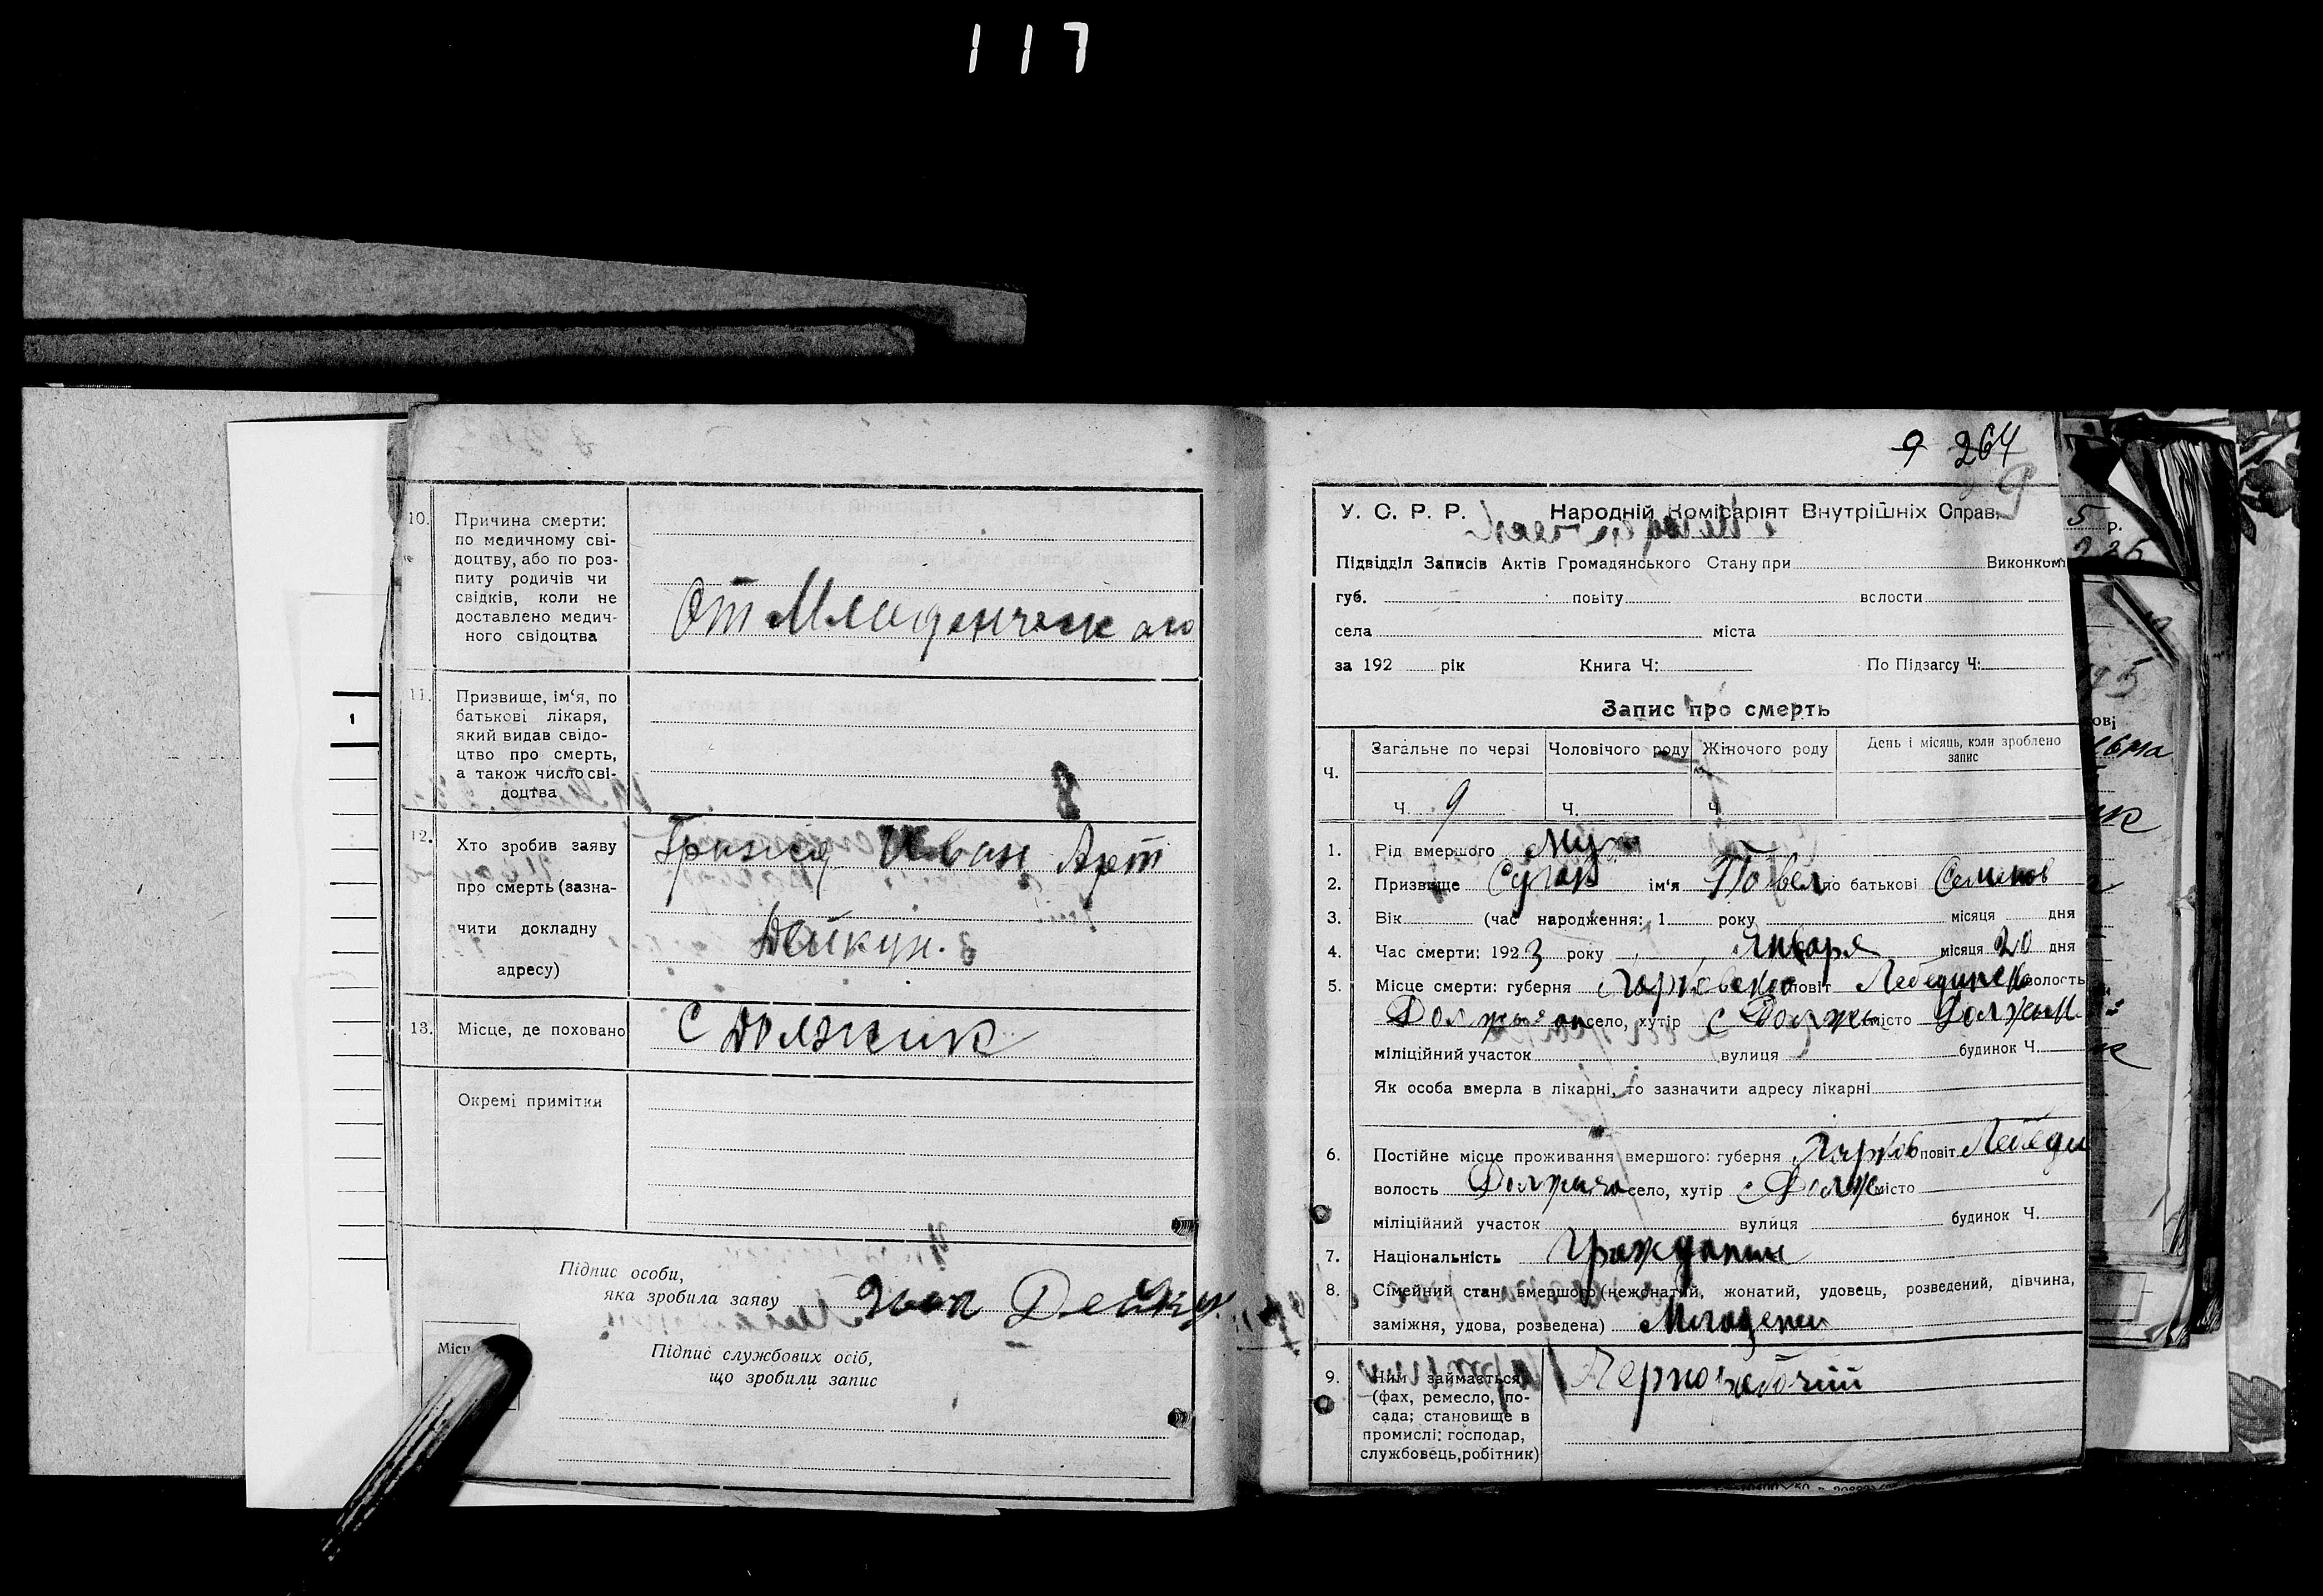 117
10.
Причина смерти:
по медичному сві-
доцтву, або по роз-
питу родичів чи
свідків, коли не
доставлено медич-
ного свідоцтва
От Младенческ ого
11.
Призвище, ім‘я, по
батькові лікаря,
який видав свідо-
цтво про смерть,
а також число сві-
доцтва
12.
Хто зробив заяву
про смерть (зазна-
чити докладну
адресу)
Иван Арт
Дейкун.
13.
Місце, де поховано
С Должик
Окремі примітки
Підпис особи,
яка зробила заяву
Підпис службових осіб,
що зробили запис
Місц
9 264
9
У. С. Р. Р. Народній Комісаріят Внутрішніх Справ.
Підвідділ Записів Актів Громадянського Стану при Виконком
губ. повіту вслости
села міста
за 192 рік Книга Ч: По Підзагсу Ч:
Запис про смерть
Ч.
Загальне по черзі Чоловічого роду Жіночого роду День і місяць, коли зроблено запис
Ч. 9 Ч. Ч.
1. Рід вмершого Муж
2. Призвище ім‘я Павел по батькові Семенов
3. Вік (час народження: 1 року місяця дня
4. Час смерти: 1923 року Января місяця 20 дня
5. Місце смерти: губерня повіт Лебединск волость
село, хутір с Должик місто
міліційний участок вулиця будинок Ч.
Як особа вмерла в лікарні, то зазначити адресу лікарні
6. Постійне місце проживання вмершого: губерня Харьков повіт Лебеди
волость село, хутір с Долж місто
міліційний участок вулиця будинок Ч.
7. Національність Гражданин
8. Сімейний стан вмершого (нежонатий, жонатий, удовець, розведений, дівчина,
заміжня, удова, розведена) Младенец
9. Чим займається
(фах, ремесло, по-
сада; становище в
промислі: господар,
службовець, робітник)
Чернорабочий